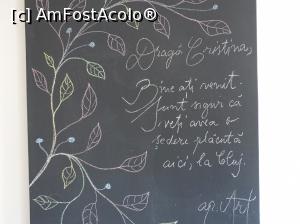 [c] AmFostAcolo®
Dragă Cristina,
Bine ați venit.
Sunt sigur că
veți avea o
ședere plăcută
aici, la Cluj.
an. Art